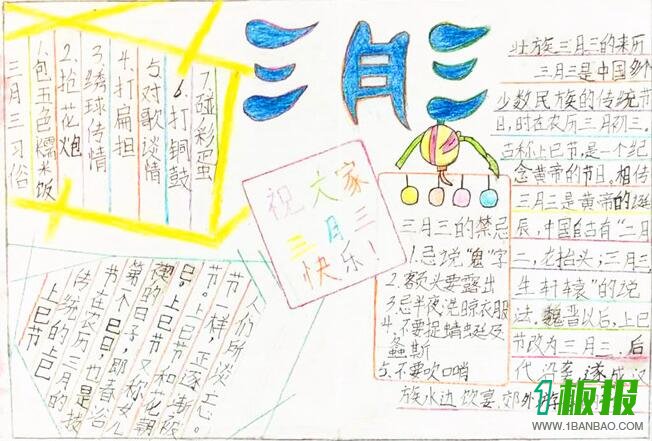 三月三
三月三习俗
1.包五色糯米饭
2.抢花炮
3.绣球传情
4.打扁担
5.对歌谈情
6.打铜鼓
7.碰彩蛋
祝大家
三月三
快乐!
上巳节
传统的上巳
节在农历三月的
第一个巳日,也是祓
禊的日子,即春浴
日。上巳节又称女儿
节。上巳节和花朝
节一样,正逐渐被
人们所淡忘。
三月三的禁忌
1.忌说“鬼”字
2.额头要露出
3.忌半夜洗晾衣服
4.不要捉蜻蜓及
螽斯
5.不要吹口哨
壮族三月三的来历
三月三是中国多个
少数民族的传统节
日,时在农历三月初三。
古称上巳节,是一个纪
念黄帝的节日。相传
三月三是黄帝的诞
辰,中国自古有“二月
二,龙抬头;三月三,
生轩辕”的说
法。魏晋以后,上巳
节改为三月三,后
代沿袭,遂成汉
族水边饮宴、郊外
1板报
WWW.1BANBAO.COM